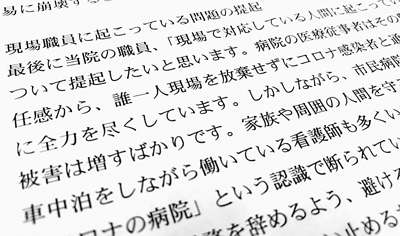 易に崩壊する
現場職員に起こっている問題の提起
最後に当院の職員、「現場で対応している人間に起こってい
ついて提起したいと思います。病院の医療従事者はその
任感から、誰一人現場を放棄せずにコロナ感染者と
に全力を尽くしています。しかしながら、市民病院
被害は増すばかりです。家族や周囲の人間を守
車中泊をしながら働いている看護師も多くい
ロナの病院」という認識で断られてい
を辞めるよう、避ける
止める